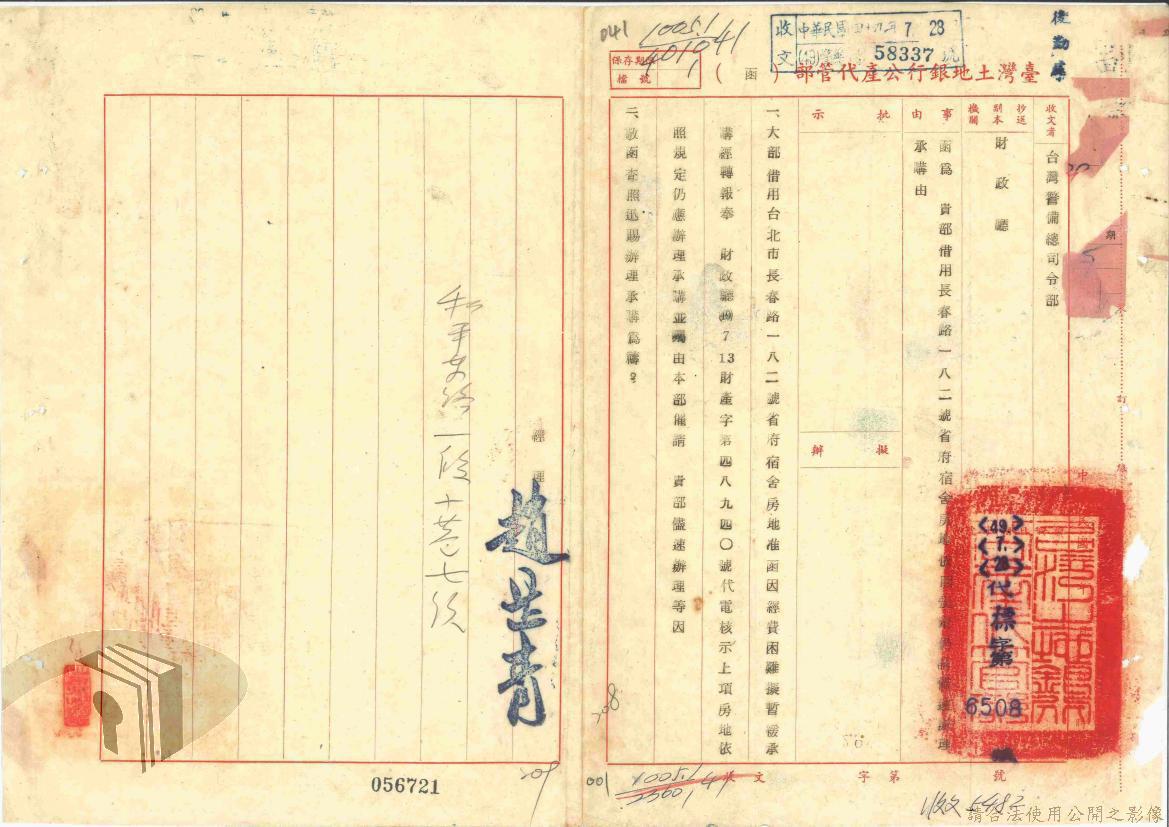 後勤處
收文 中華民國四十九年7 23
58337號
041
1005.1
4010
41
1
保存期限
檔號
臺灣土地銀行公產代管部(函)
收文者 台灣警備總司令部
抄送副本機關 財政廳
事由 函爲 貴部借用長春路一八二號省府宿舍房地
承購由
批示
擬辦
一、大部借用台北市長春路一八二號省府宿舍房地准函因經費困難擬暫緩承
購經轉報奉 財政廳49 7 13財產字第四八九四〇號代電核示上項房地依
照規定仍應辦理承購並 由本部催請 貴部儘速辦理等因
二、敬函查照迅賜辦理承購爲禱。
經理 趙
和平東路一段十巷七號
<49.>
<7.>
<23>
代標字第
6508
號
中
訂
期
收文 字第 號
收文5482
001
056721
請合法使用公開之影像